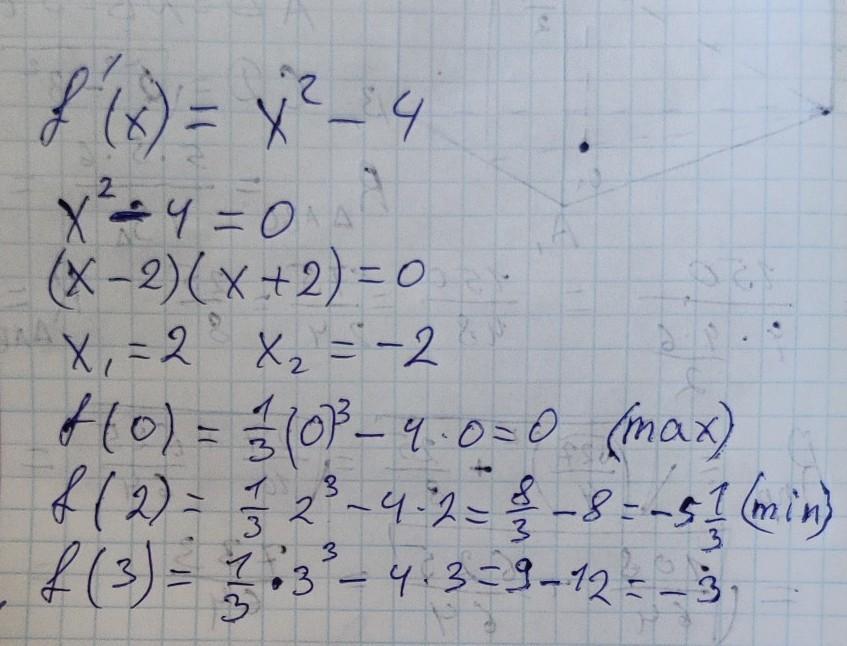 f'(x) = x² - 4
x² - 4 = 0
(x - 2)(x + 2) = 0
x₁ = 2 x₂ = -2
f(0) = 1/3 (0)³ - 4 · 0 = 0 (max)
f(2) = 1/3 2³ - 4 · 2 = 8/3 - 8 = -5 1/3 (min)
f(3) = 1/3 · 3³ - 4 · 3 = 9 - 12 = -3